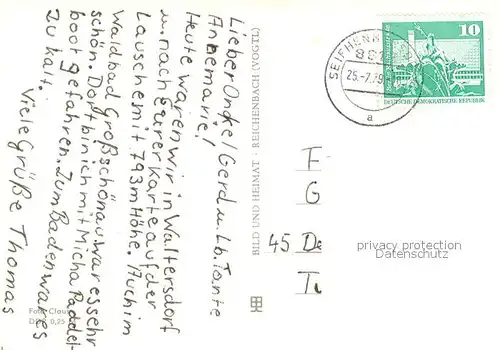 Lieber Onkel Gerd u. Lb. Tante
Annemarie!
Heute waren wir in Waltersdorf
u. nach eurer Karte auf der
Lausche mit 793m Höhe. Auch im
Waldbad Großschönau war es sehr
schön. Dort bin ich mit Micha Paddel-
boot gefahren. Zum Baden war es
zu kalt.
Viele Grüße Thomas
BILD UND HEIMAT · REICHENBACH (VOGTL)
10
DEUTSCHE DEMOKRATISCHE REPUBLIK
a
F
G
45 De
privacy protection
Datenschutz